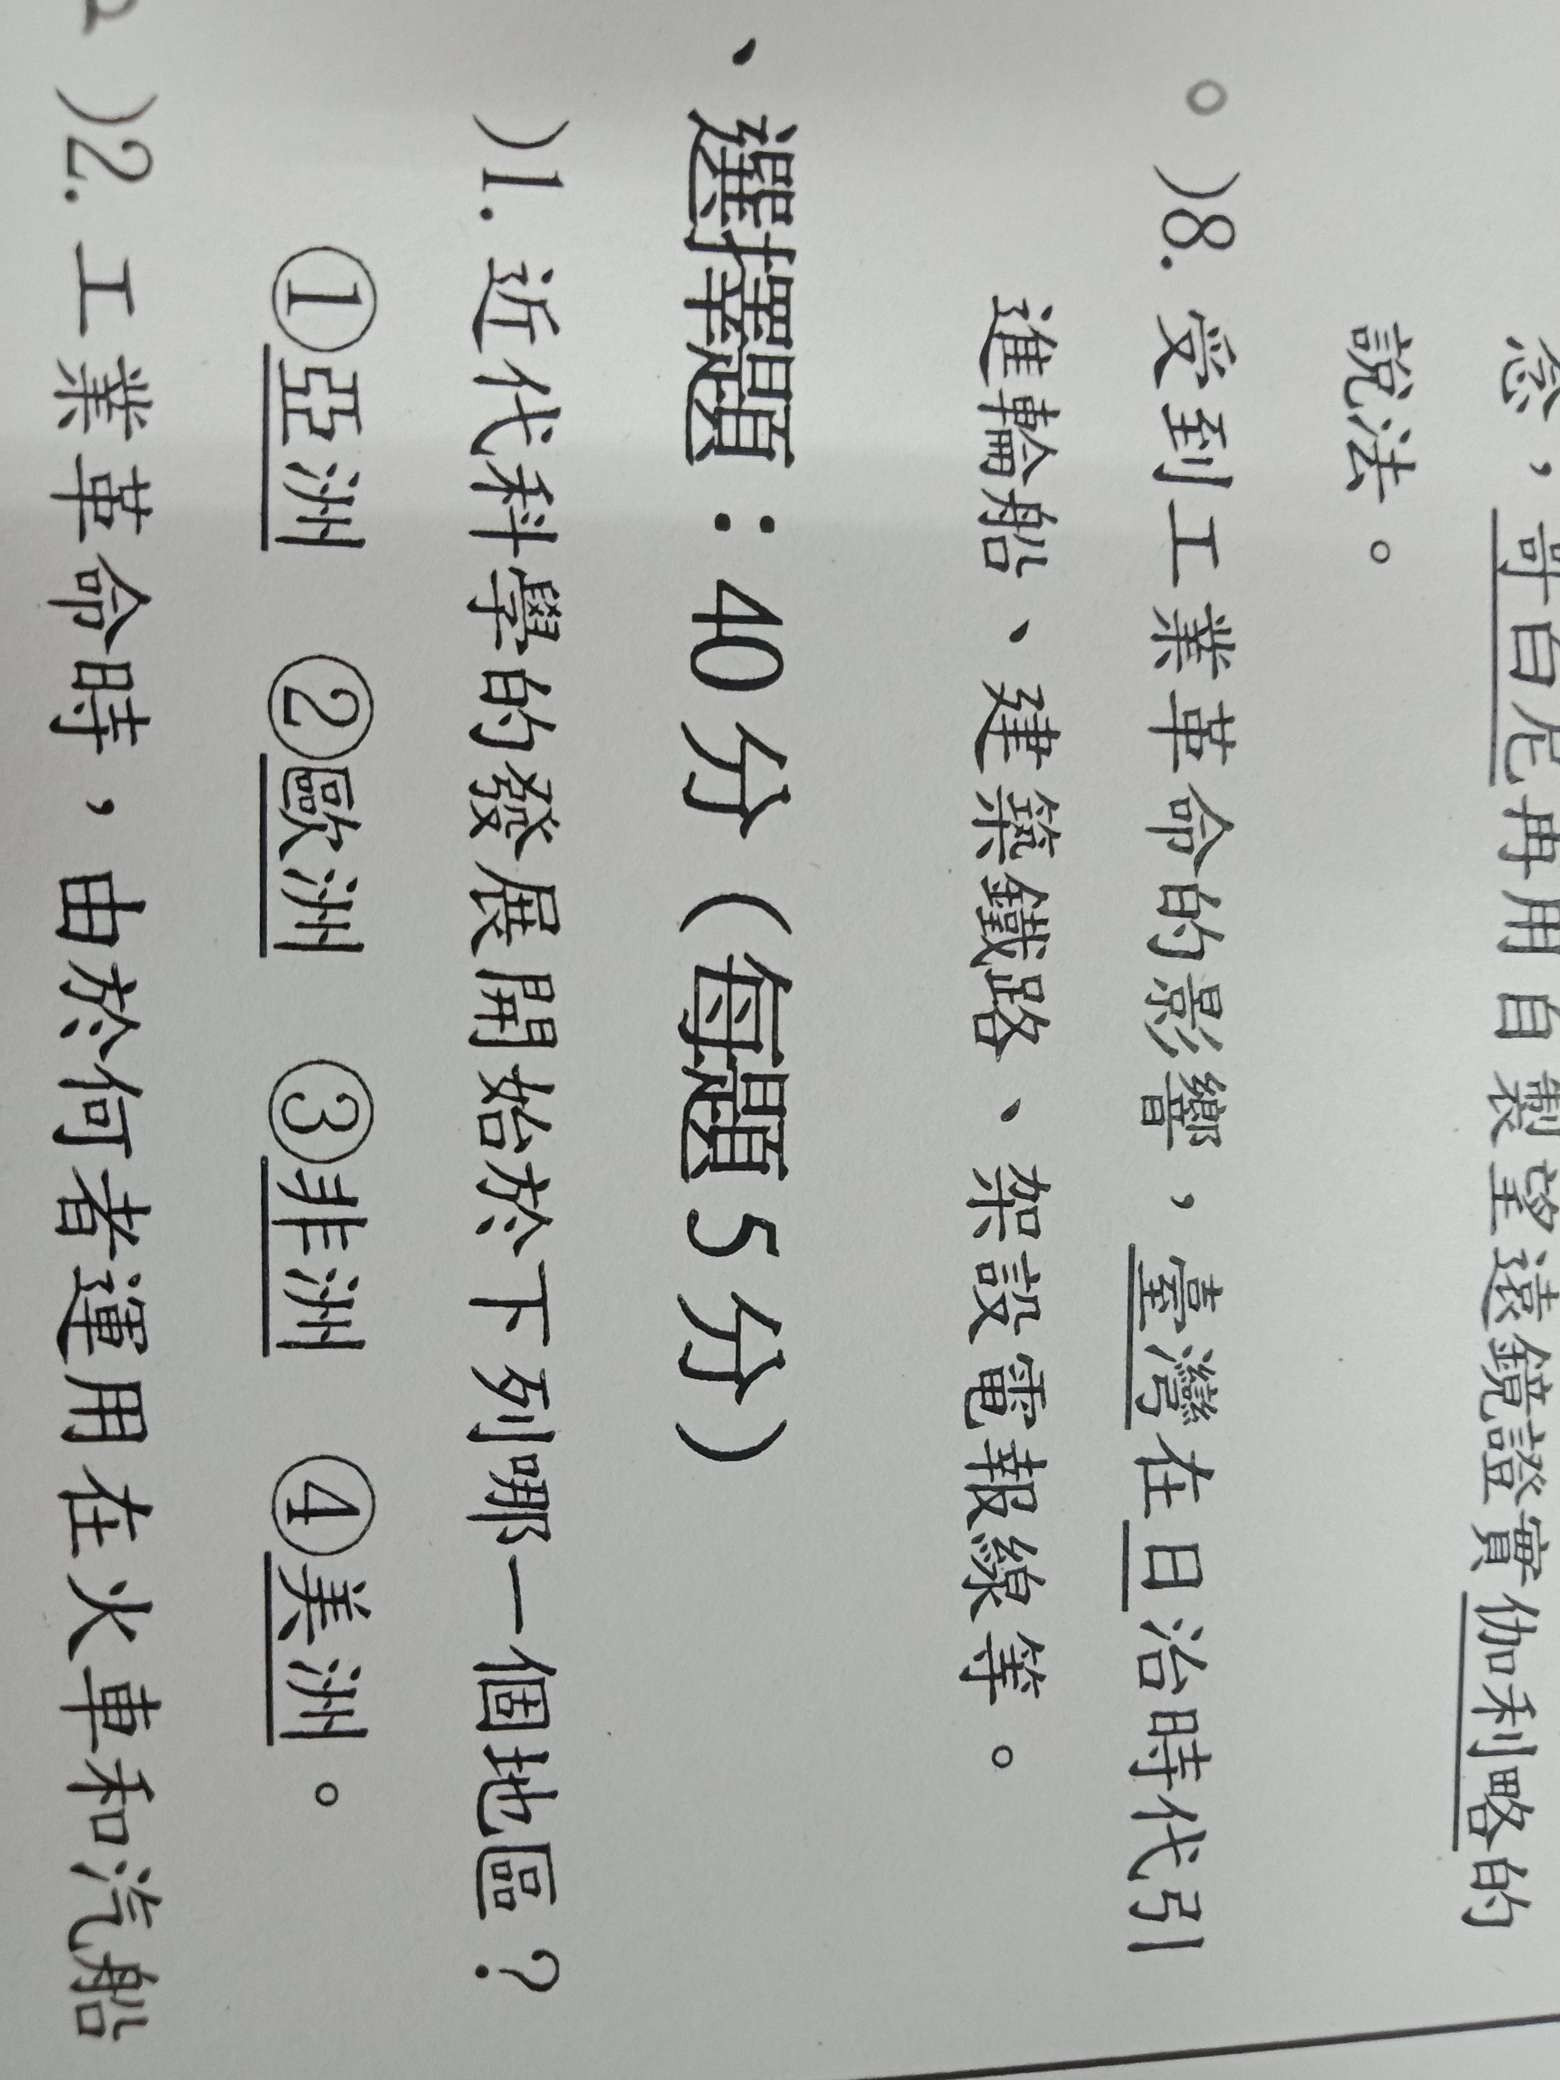 念，哥白尼再用自製望遠鏡證實伽利略的
說法。
。)8.受到工業革命的影響，臺灣在日治時代引
進輪船、建築鐵路、架設電報線等。
、選擇題：40分（每題5分）
)1.近代科學的發展開始於下列哪一個地區？
①亞洲 ②歐洲 ③非洲 ④美洲。
)2.工業革命時，由於何者運用在火車和汽船